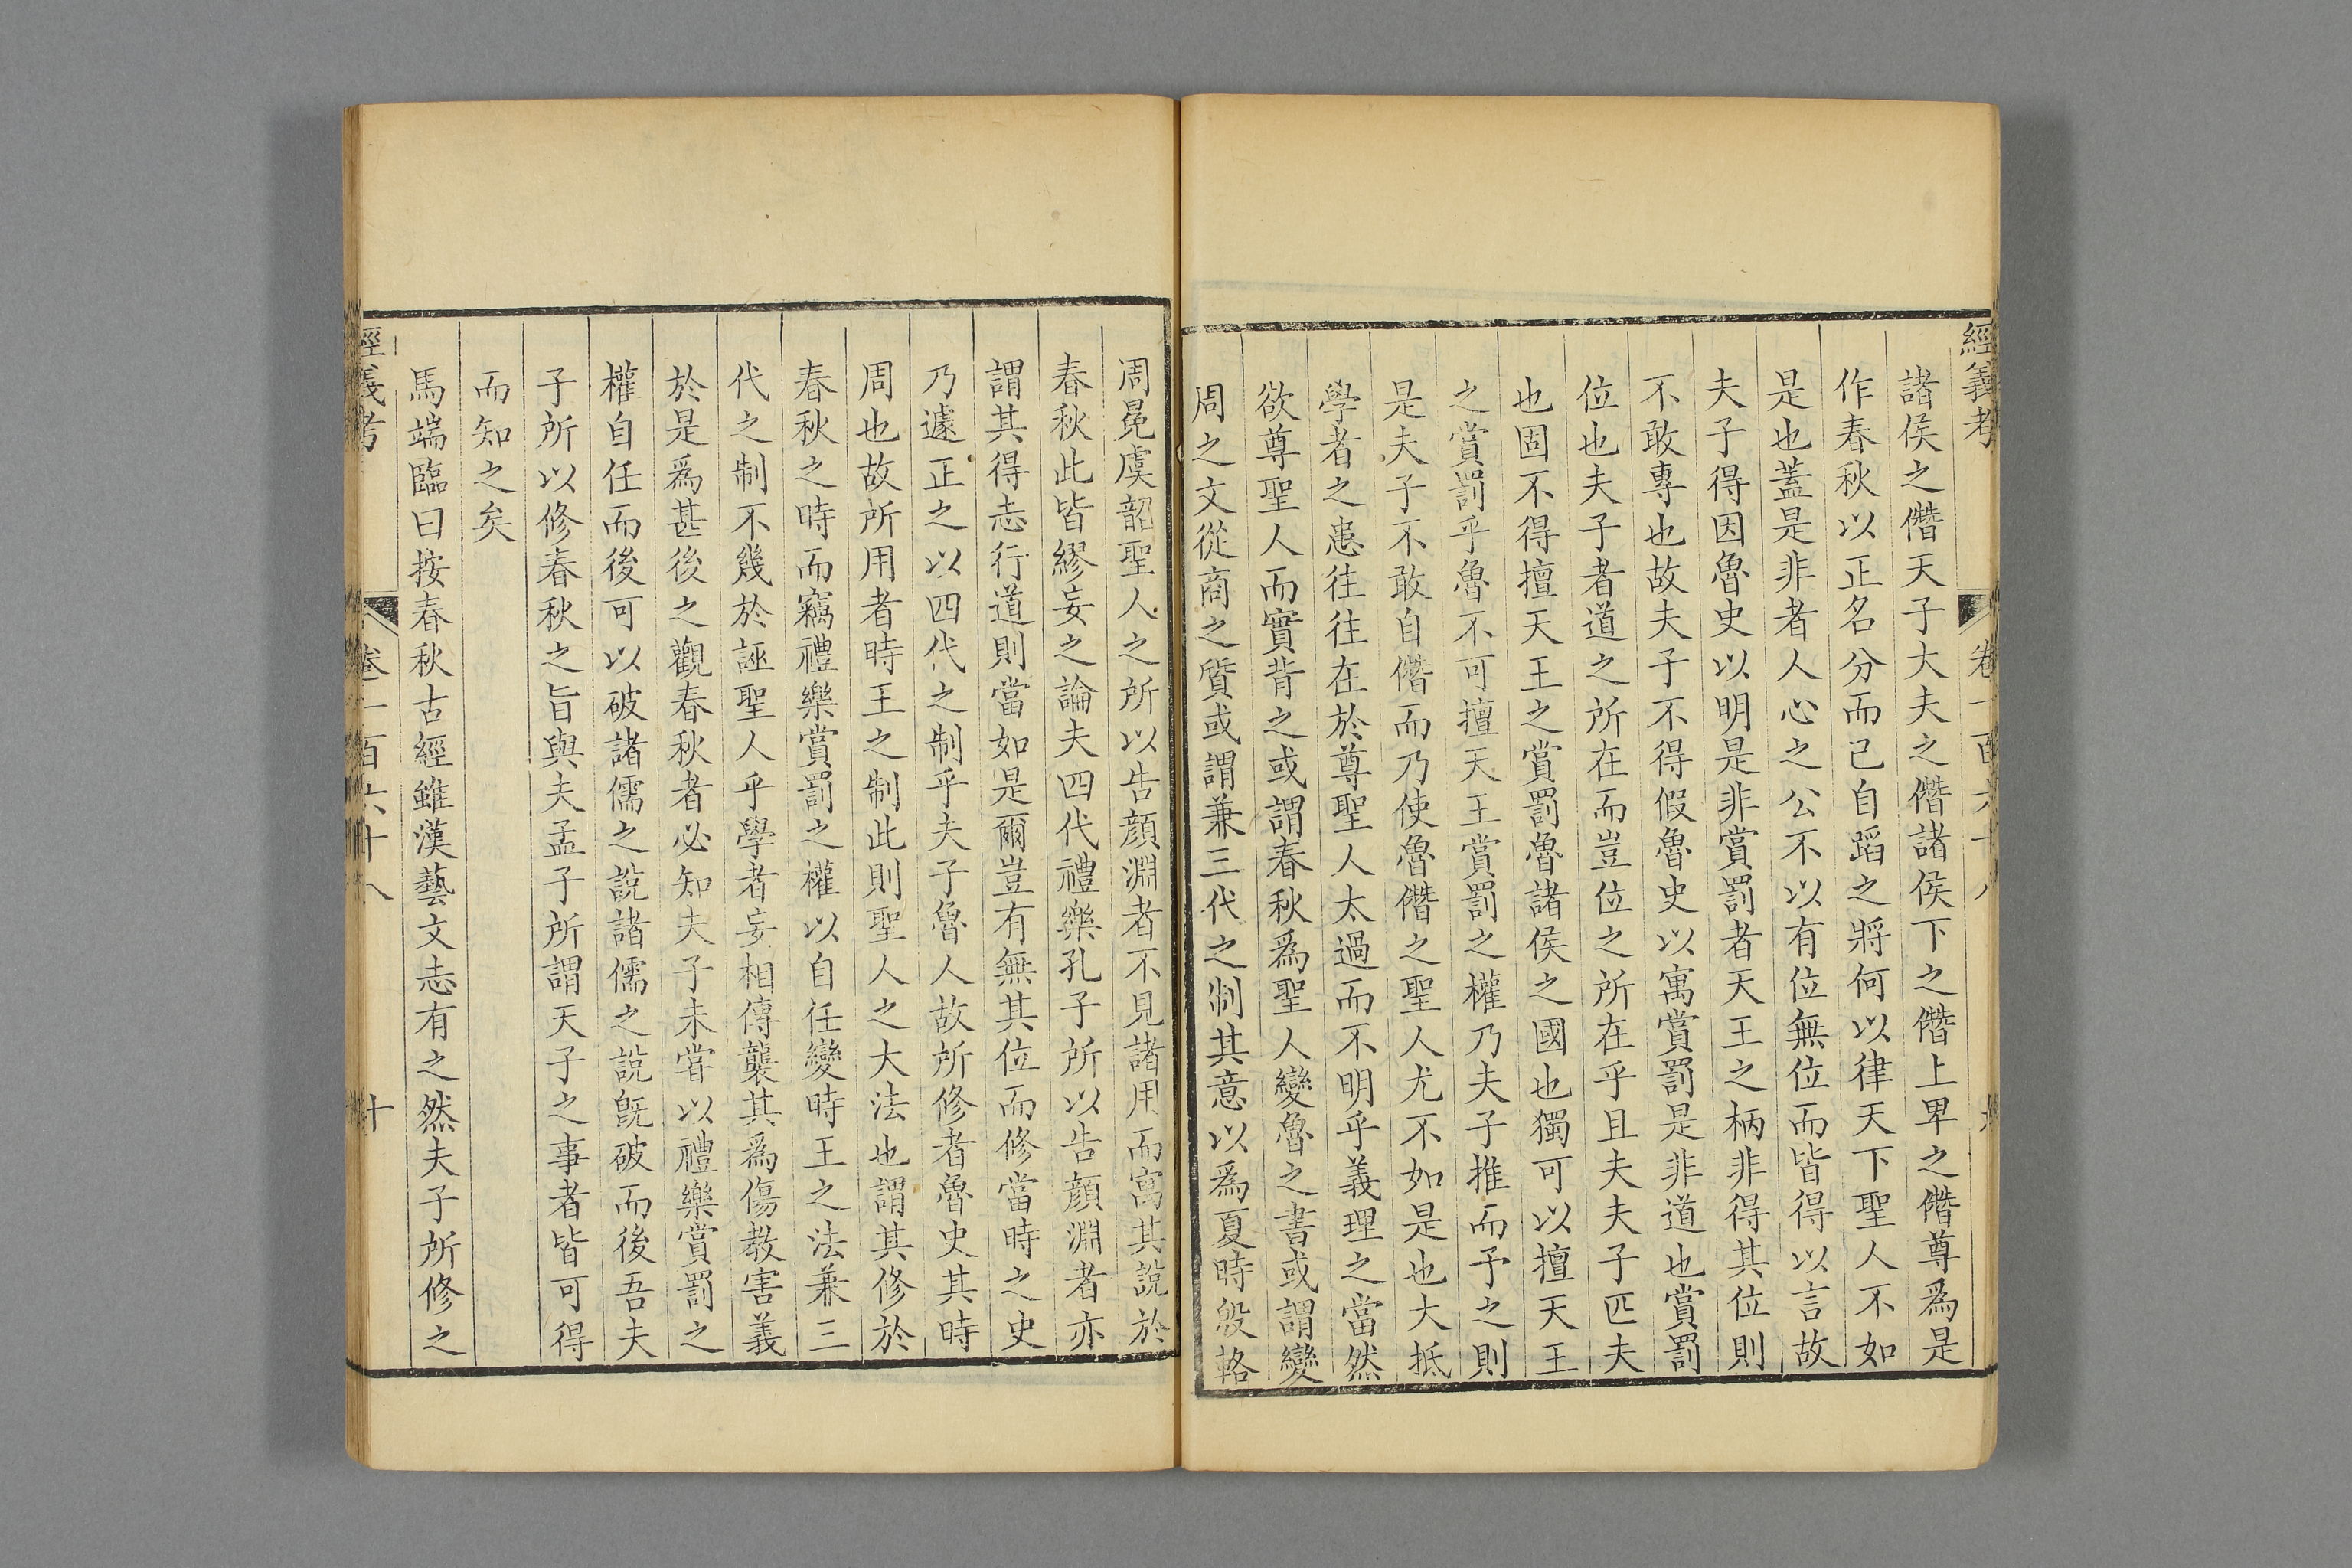 經義考 卷一百六十八
諸侯之僭天子大夫之僭諸侯下之僭上卑之僭尊爲是
作春秋以正名分而己自蹈之將何以律天下聖人不如
是也蓋是非者人心之公不以有位無位而皆得以言故
夫子得因魯史以明是非賞罰者天王之柄非得其位則
不敢專也故夫子不得假魯史以寓賞罰是非道也賞罰
位也夫子者道之所在而豈位之所在乎且夫夫子匹夫
也固不得擅天王之賞罰魯諸侯之國也獨可以擅天王
之賞罰乎魯不可擅天王賞罰之權乃夫子推而予之則
是夫子不敢自僭而乃使魯僭之聖人尤不如是也大抵
學者之患往往在於尊聖人太過而不明乎義理之當然
欲尊聖人而實背之或謂春秋爲聖人變魯之書或謂變
周之文從商之質或謂兼三代之制其意以爲夏時殷輅
周冕虞韶聖人之所以告顏淵者不見諸用而寓其說於
春秋此皆繆妄之論夫四代禮樂孔子所以告顏淵者亦
謂其得志行道則當如是爾豈有無其位而修當時之史
乃遽正之以四代之制乎夫子魯人故所修者魯史其時
周也故所用者時王之制此則聖人之大法也謂其修於
春秋之時而竊禮樂賞罰之權以自任變時王之法兼三
代之制不幾於誣聖人乎學者妄相傳襲其爲傷教害義
於是爲甚後之觀春秋者必知夫子未嘗以禮樂賞罰之
權自任而後可以破諸儒之說諸儒之說旣破而後吾夫
子所以修春秋之旨與夫孟子所謂天子之事者皆可得
而知之矣
馬端臨曰按春秋古經雖漢藝文志有之然夫子所修之
經義考 卷一百六十八 十